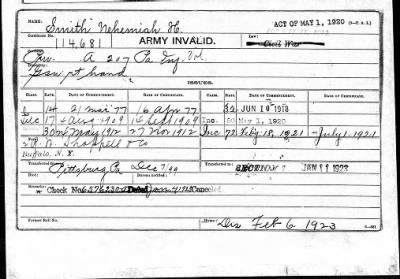 NAME: Smith Nehemiah H. ACT OF MAY 1, 1920
Certificate No. 114,681 ARMY INVALID. Law: Civil War
A 207 Pa
Gsw pt hand
ISSUES.
CLASS. RATE. DATE OF COMMENCEMENT. DATE OF CERTIFICATE. CLASS. RATE. DATE OF COMMENCEMENT. DATE OF CERTIFICATE.
14 21 mar 77 16 Apr 77 32 JUN 10 1918
17 Aug 1909 1909 Inc. 50 May 1, 1920
30 May 1912 27 Nov 1912 Inc 72 Feby 18, 1921 July 1 1921
Shappell & Co
Buffalo, N. Y.
Transferred from
Pittsburg Pa Dec 7/99 SECTION JAN 11 1923
Check No. Dated Jan 4 1923 Canceled
Former Roll No. Home: Dis Feb 6 1923